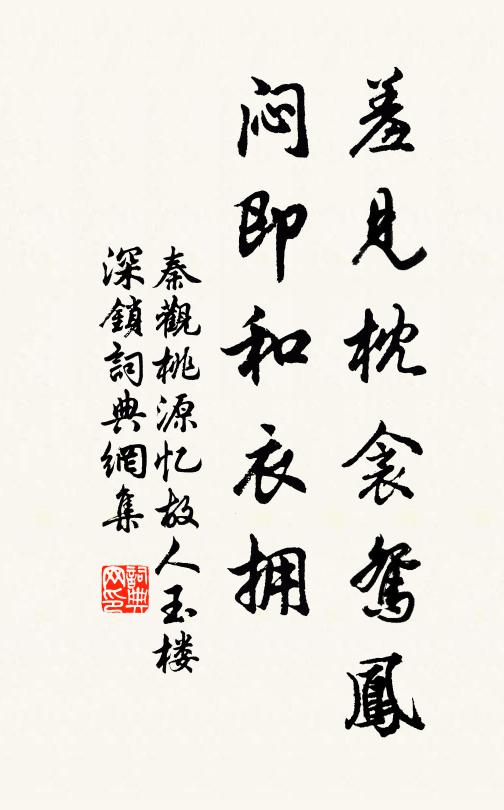 羞見枕衾鴛鳳
闷即和衣拥
秦觀桃源忆故人玉楼
深鎖詞典網集
詞典网印